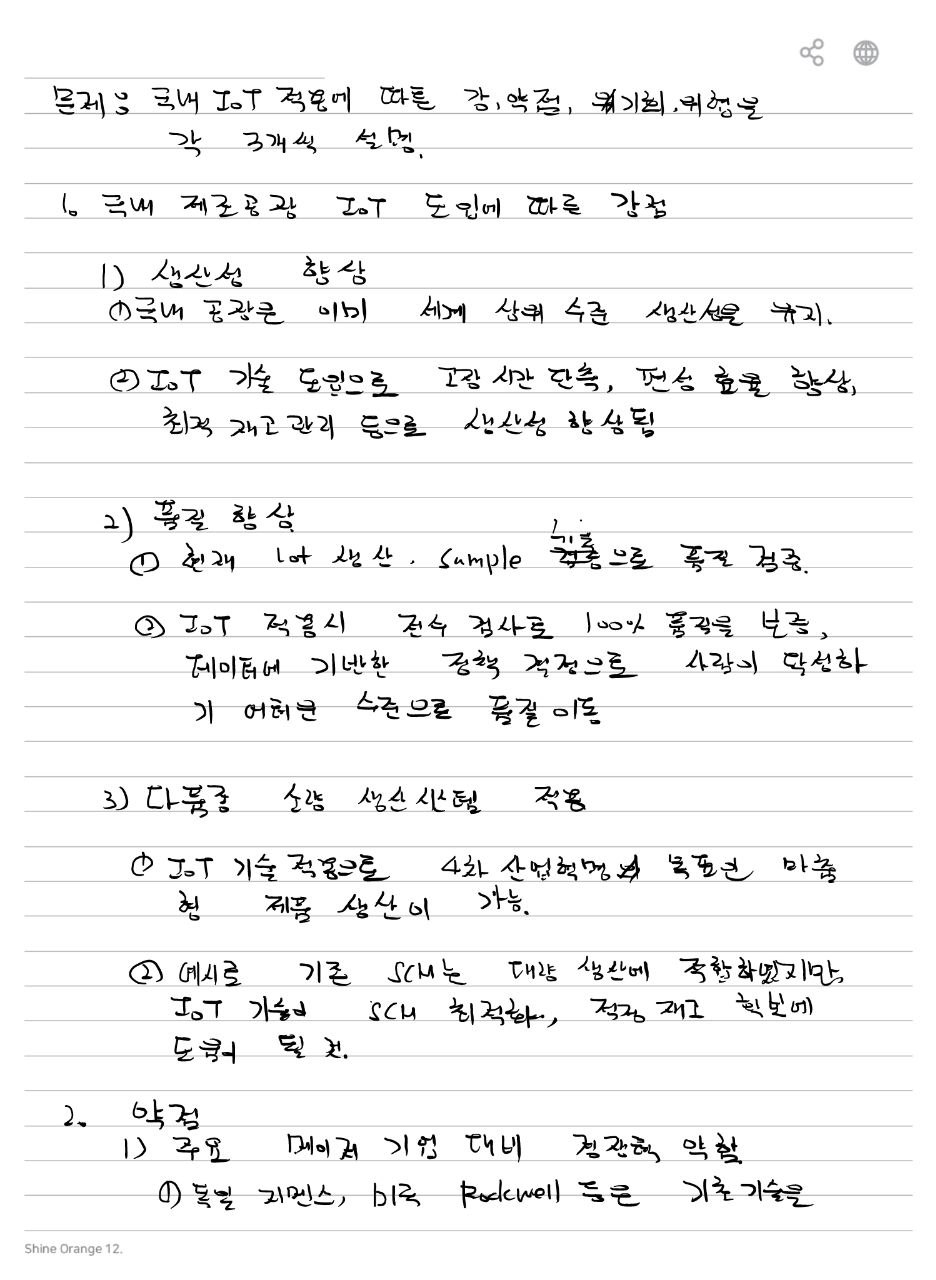 문제 : 국내 IoT 적용에 따른 강, 약점, 기회, 위험을
각 3개씩 설명.
1. 국내 제조공장 IoT 도입에 따른 강점
1) 생산성 향상
① 국내 공장은 이미 세계 상위 수준 생산성을 유지.
② IoT 기술 도입으로 고장 시간 단축, 편성 효율 향상,
최적 재고 관리 등으로 생산성 향상됨
2) 품질 향상
① 현재 lot 생산, sample 기준으로 품질 검증.
② IoT 적용시 전수 검사로 100% 품질을 보증,
데이터에 기반한 정책 결정으로 사람이 달성하
기 어려운 수준으로 품질 이동
3) 다품종 소량 생산 시스템 적용
① IoT 기술 적용으로 4차 산업혁명 목표인 맞춤
형 제품 생산이 가능.
② 예시로 기존 SCM는 대량 생산에 적합하였지만,
IoT 기술이 SCM 최적화, 적정 재고 확보에
도움이 될 것.
2. 약점
1) 주요 메이저 기업 대비 경쟁력 약함.
① 독일 지멘스, 미국 Rockwell 등은 기초 기술을
Shine Orange 12.